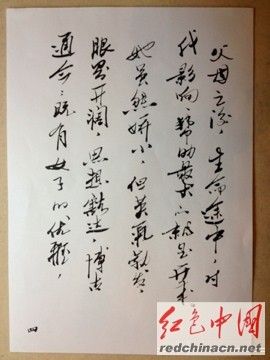 父母之后，生命途中，对
我影响、帮助最大
她虽然娇小，但英气勃勃，
眼界开阔，思想豁达，博古
通今，既有女子的优雅，
四
红色中国
redchinacn.net